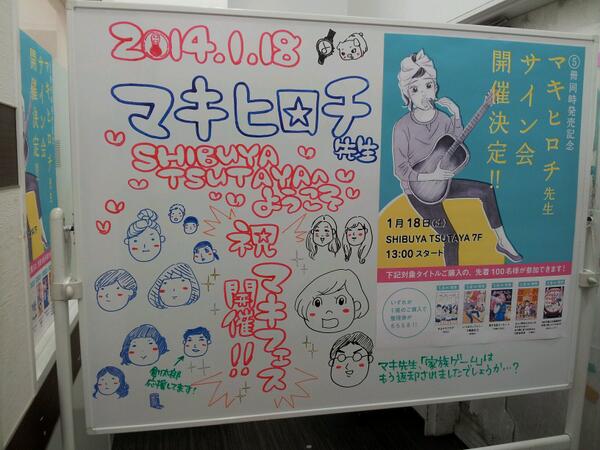 2014.1.18
マキヒロチ
先生
SHIBUYA
TSUTAYAへ
ようこそ
祝
マキフェス
開催!!
食堂部
応援してます!
マキ先生、「家族ゲーム」は
もう返却されましたでしょうか…?
⑤冊同時発売記念
マキヒロチ先生
サイン会
開催決定!!
1月18日(土)
SHIBUYA TSUTAYA 7F
13:00 スタート
下記対象タイトルご購入の、先着100名様が参加できます!
いずれか
1冊のご購入で
整理券が
もらえる!!
マキヒロチ先生
サイン会
開催決定!!